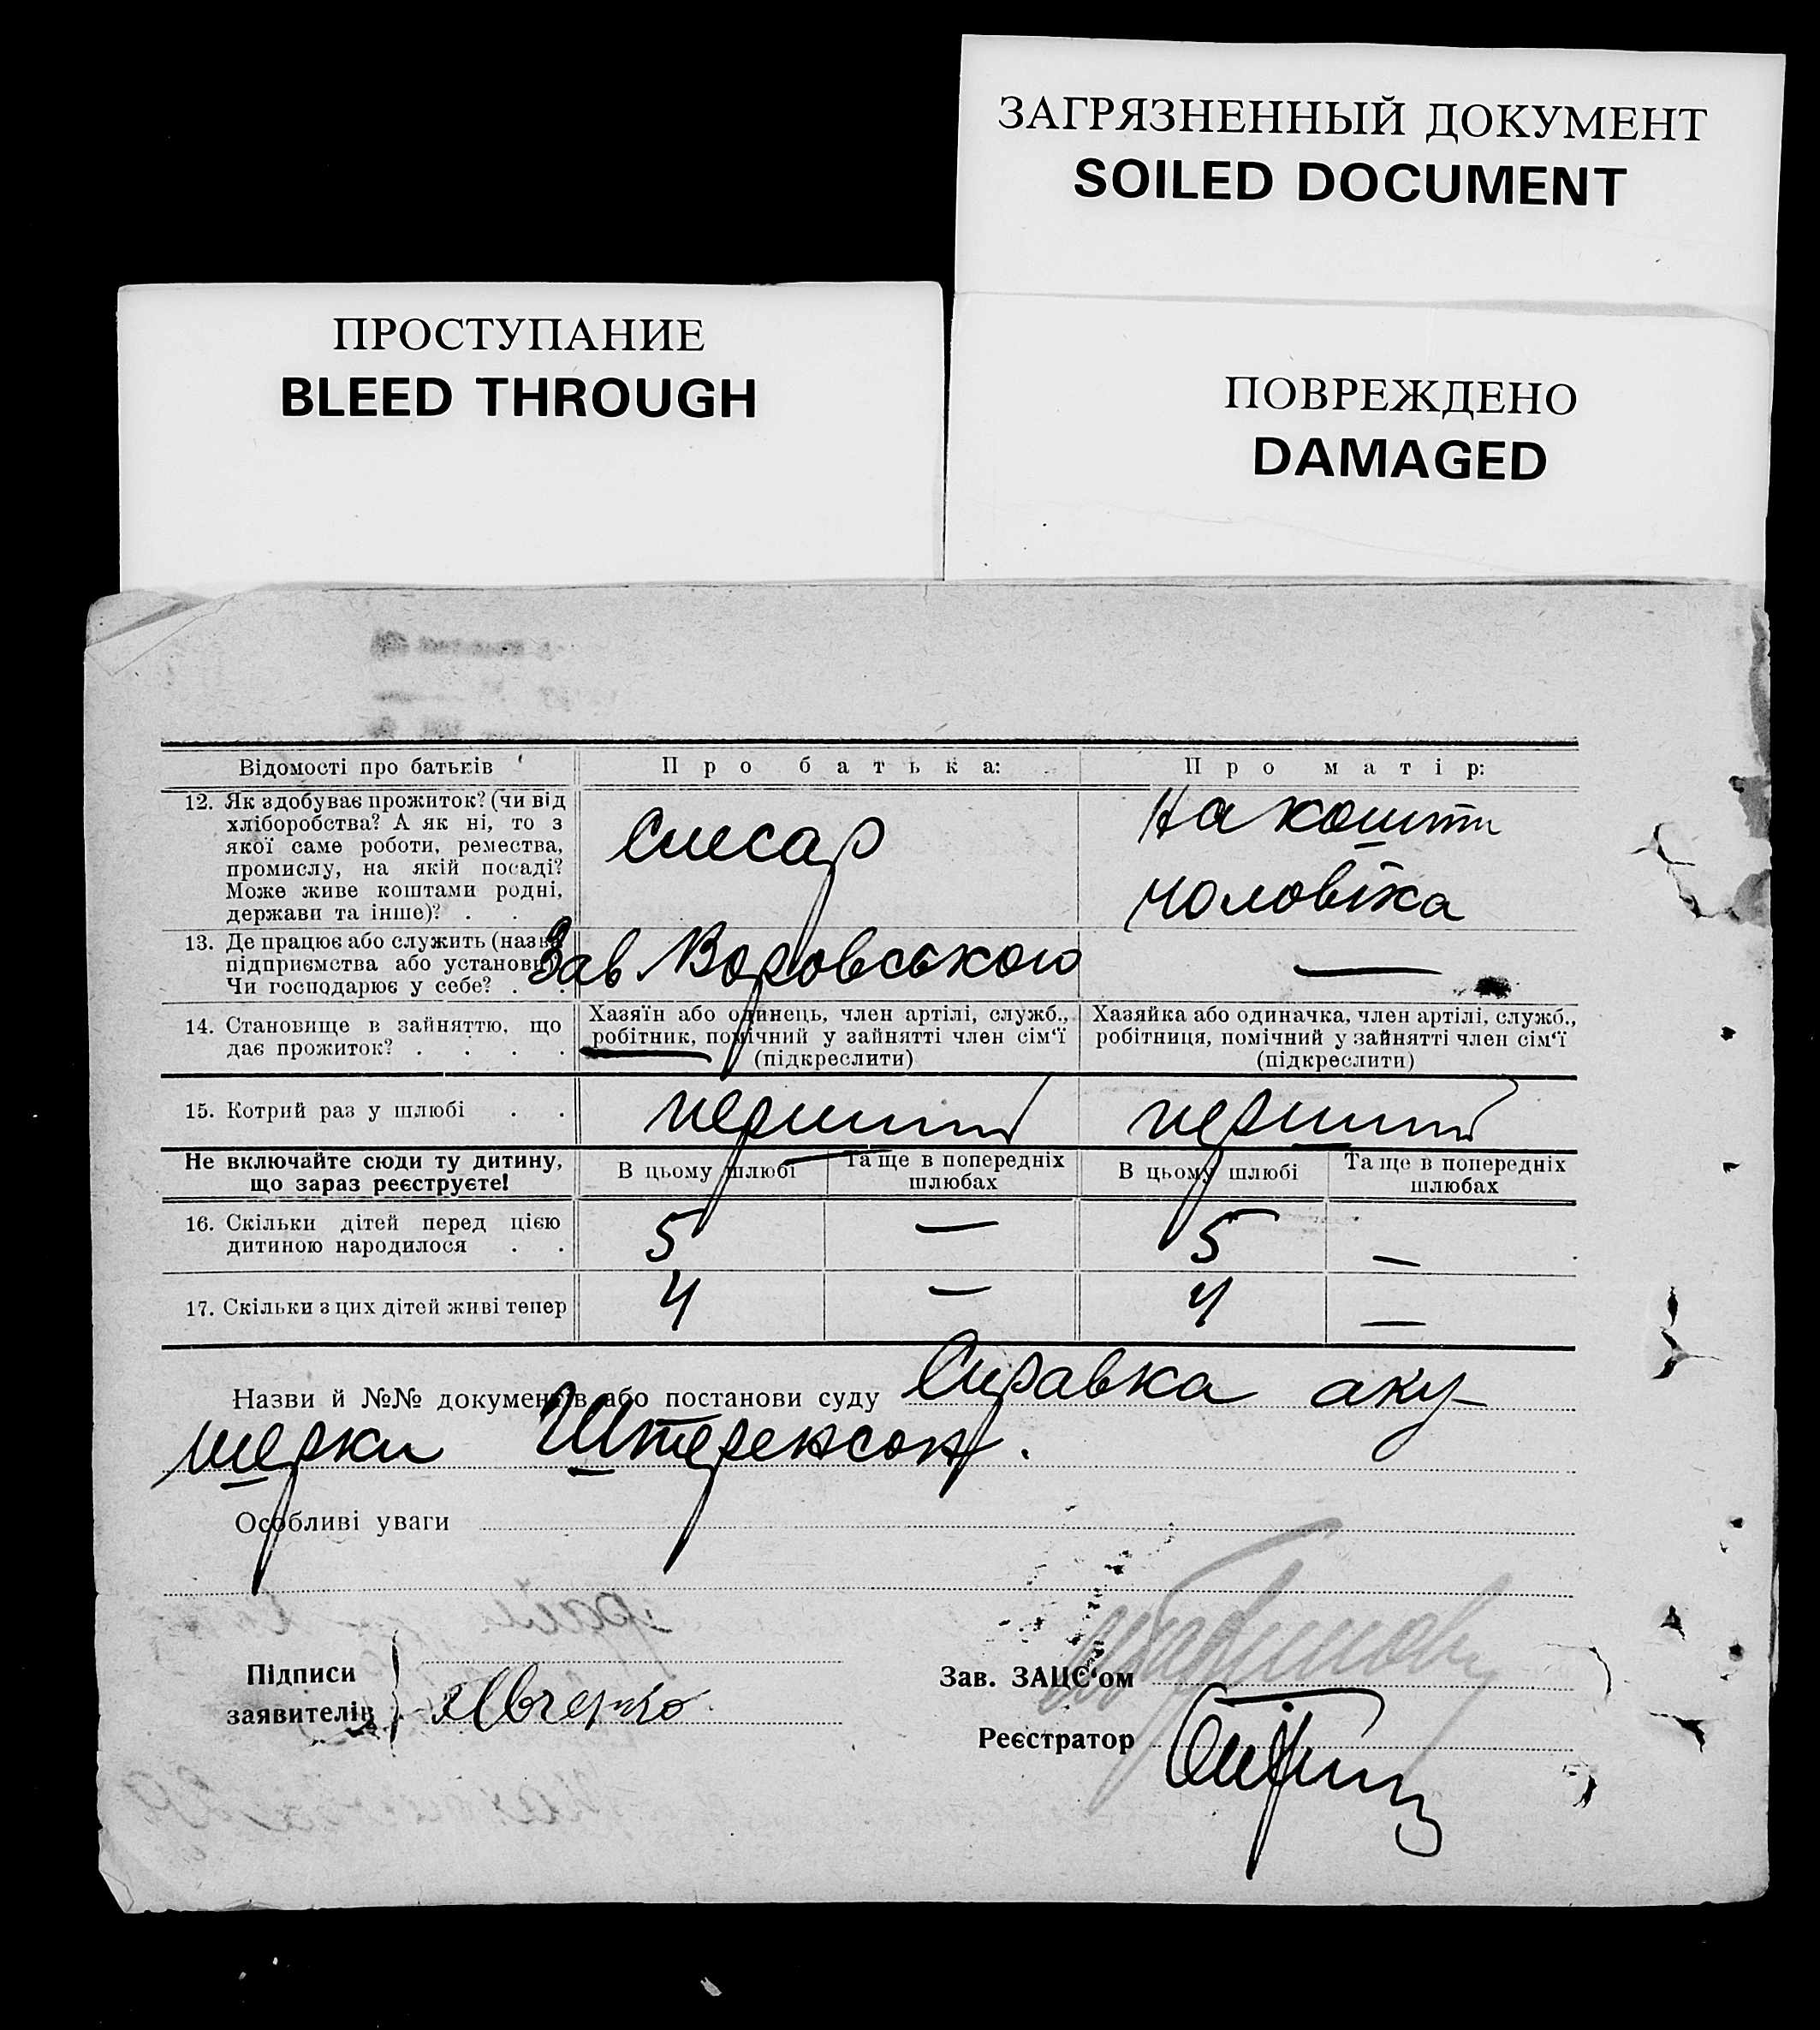 ЗАГРЯЗНЕННЫЙ ДОКУМЕНТ
SOILED DOCUMENT
ПРОСТУПАНИЕ
BLEED THROUGH
ПОВРЕЖДЕНО
DAMAGED
Відомості про батьків
Про батька:
Про матір:
12. Як здобуває прожиток? (чи від
хліборобства? А як ні, то з
якої саме роботи, ремества,
промислу, на якій посаді?
Може живе коштами родні,
держави та інше)? . . .
Слесар
На кошти
чоловіка
13. Де працює або служить (назва
підприємства або установи)
Чи господарює у себе? . .
Зав Воровського
—
14. Становище в зайняттю, що
дає прожиток? . . . .
Хазяїн або одинець, член артілі, служб.,
робітник, помічний у зайнятті член сім‘ї
(підкреслити)
Хазяйка або одиначка, член артілі, служб.,
робітниця, помічний у зайнятті член сім‘ї
(підкреслити)
15. Котрий раз у шлюбі . .
перший
перший
Не включайте сюди ту дитину,
що зараз реєструєте!
В цьому шлюбі
Та ще в попередніх
шлюбах
В цьому шлюбі
Та ще в попередніх
шлюбах
16. Скільки дітей перед цією
дитиною народилося . .
5 — 5 —
17. Скільки з цих дітей живі тепер
4 — 4 —
Назви й №№ документів або постанови суду Справка аку-
шерки Штеренсон.
Особливі уваги
Підписи
заявителів
Зав. ЗАЦС‘ом
Реєстратор